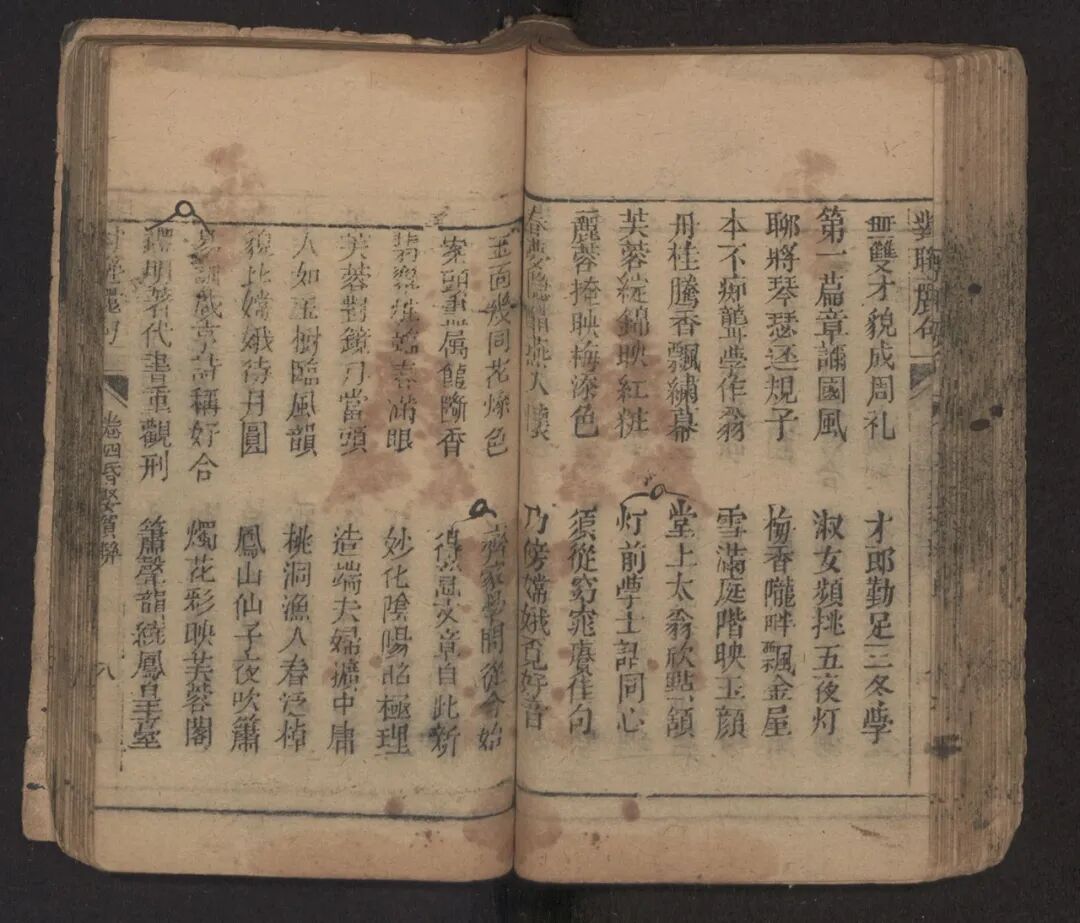 對聯麗句
無雙才貌成周礼 才郎勤足三冬斈
第一篇章誦國風 淑女頻挑五夜灯
聊將琴瑟还規子 梅香隴畔飄金屋
本不痴聾斈作翁 雪滿庭階映玉顔
丹桂騰香飄綉幕 堂上太翁欣點頷
芙蓉綻錦映紅粧 灯前斈士話同心
麗蓉掩映梅添色 須從窈窕賡佳句
春 人懷 乃傍嫦娥覓好音
玉面幾同花燦色 齊家斈問從今始
案頭重属舊斷香 得意文章自此新
翡翠 春滿眼 妙化陰陽昭極理
芙蓉對鏡月當頭 造端夫婦讀中庸
人如玉樹臨風韻 桃洞漁人春泛棹
貌比嫦娥待月圓 鳳山仙子夜吹簫
詩稱好合 燭花彩映芙蓉閣
明著代書重觀刑 簫聲韻繞鳳皇臺
卷四昏娶賀辭 八